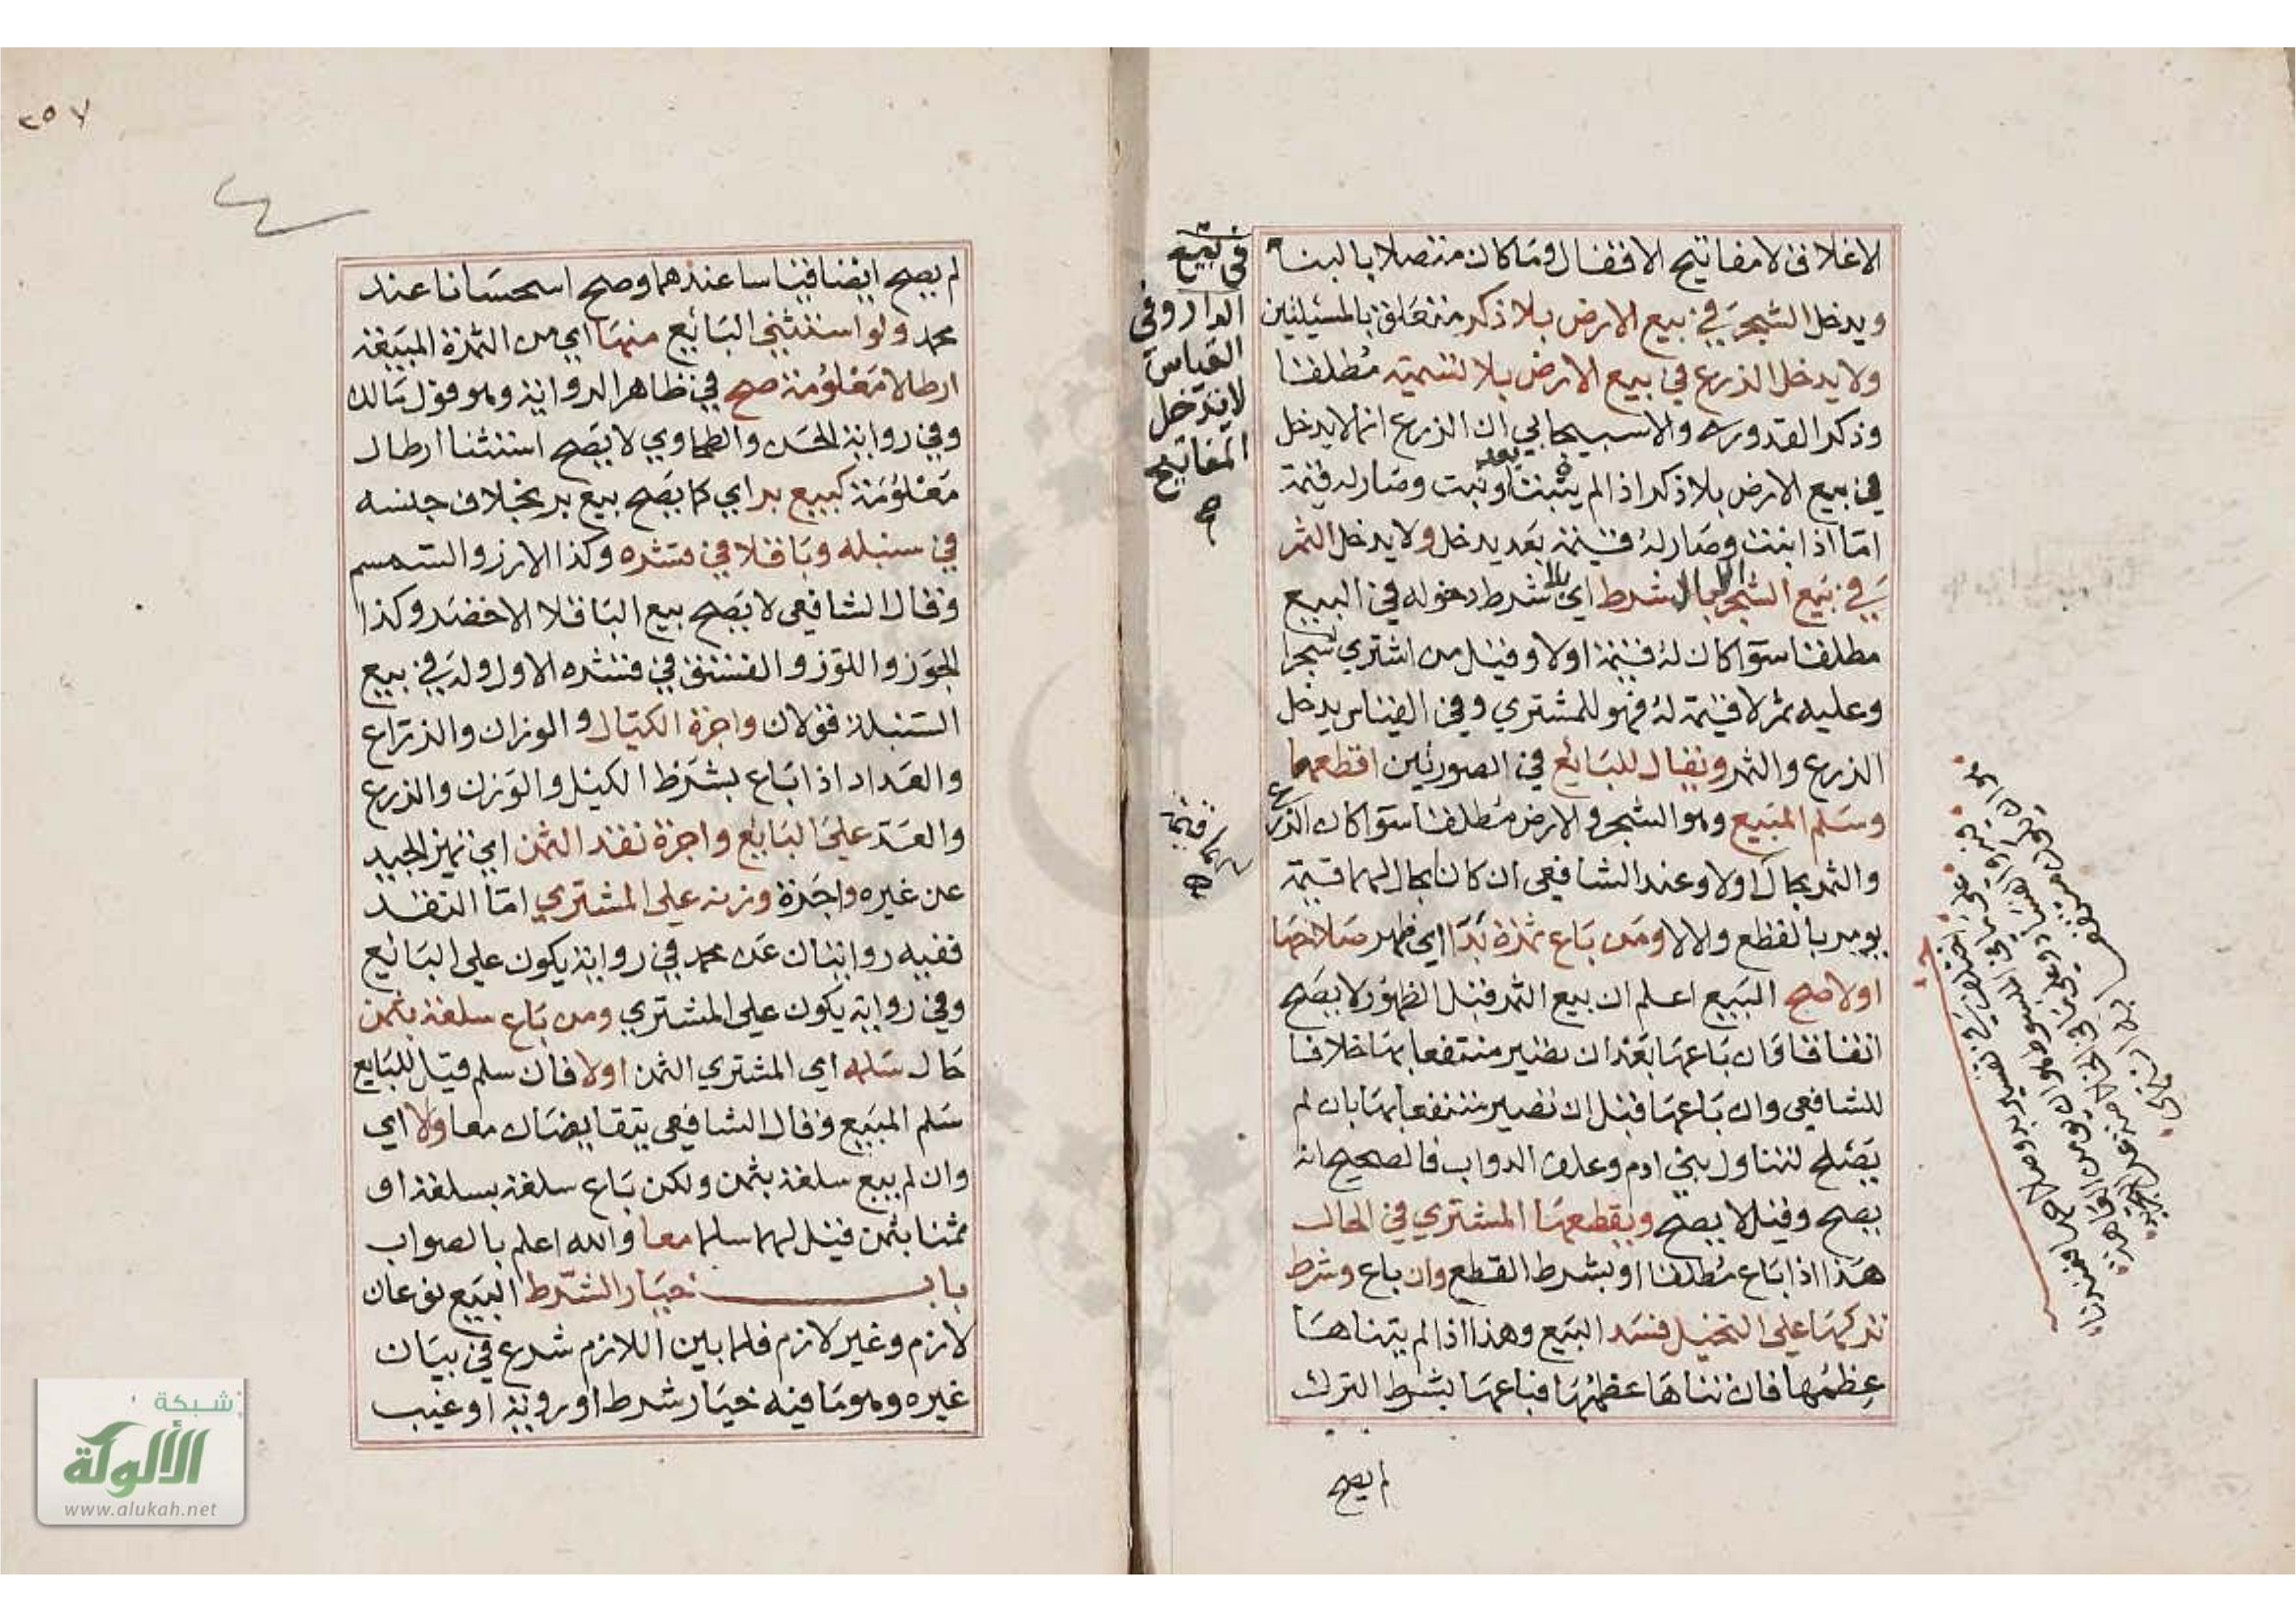 الاغلاق لا مفاتيح الاقفال وما كان متصلا بالبناء
ويدخل الشجر في بيع الارض بلا ذكر متعلق بالمسئيلتين
ولا يدخل الزرع في بيع الارض بلا تسمية مطلقا
وذكر القدوري والاسبيجابي ان الزرع انما لا يدخل
في بيع الارض بلا ذكر اذا لم ينبت او نبت وصار له قيمة
اما اذا نبت وصار له قيمة بعد يدخل ولا يدخل الثمر
في بيع الشجر الا بالشرط اي بالشرط دخوله في البيع
مطلقا سوآ كان له قيمة اولا وقيل من اشتري شجرا
وعليه ثمر لا قيمة له فهو للمشتري وفي القياس يدخل
الزرع والثمر ويقال للبايع في الصورتين اقطعهما
وسلم المبيع وهو الشجر والارض مطلقا سوآ كان الزرع
والثمر بحال اولا وعند الشافعي ان كانا بحال لهما قيمة
يومر بالقطع والا لا ومن باع ثمرة بدا اي ظهر صلاحها
اولا صح البيع اعلم ان بيع الثمر قبل الظهور لا يصح
اتفاقا فان باعها بعد ان تصير منتفعا بها خلافا
للشافعي وان باعها قبل ان تصير منتفعا بها بان لم
يصلح لتناول بني ادم وعلف الدواب فالصحيح انه
يصح وقيل لا يصح ويقطعها المشتري في الحال
هذا اذا باع مطلقا او بشرط القطع وان باع وشرط
تركها علي النخيل فسد البيع وهذا اذا لم يتناها
عظمها فان تناها عظمها فباعها بشرط الترك
لم يصح
في بيع
الدار وفي
القياس
لا يدخل
المفاتيح
لهما قيمة
٢٥٧
لم يصح ايضا قياسا عندهما وصح اسحسانا عند
محمد ولو استثني البائع منها اي من الثمرة المبيعة
ارطالا معلومة صح في ظاهر الرواية وهو قول مالك
وفي رواية الحسن والطحاوي لا يصح استثنا ارطال
معلومة كبيع بر اي كما يصح بيع بر بخلاف جنسه
في سنبله وباقلا في قشره وكذا الارز والسمسم
وقال الشافعي لا يصح بيع الباقلا الاخضر وكذا
الجوز واللوز والفستق في قشره الاول وله في بيع
السنبلة قولان واجرة الكيال والوزان والذراع
والعداد اذا باع بشرط الكيل والوزن والذرع
والعد علي البايع واجرة نقد الثمن اي تميز الجيد
عن غيره واجرة وزنه علي المشتري اما النقد
ففيه روايتان عن محمد في رواية يكون علي البائع
وفي رواية يكون علي المشتري ومن باع سلعة بثمن
حال سلمه اي المشتري الثمن اولا فان سلم قيل للبايع
سلم المبيع وقال الشافعي يتقابضان معا ولا اي
وان لم يبع سلعة بثمن ولكن باع سلعة بسلعة او
ثمنا بثمن قيل لهما سلما معا والله اعلم بالصواب
باب خيار الشرط البيع نوعان
لازم وغير لازم فلما بين اللازم شرع في بيان
غيره وهو ما فيه خيار شرط او روية او عيب
شبكة
الألوكة
www.alukah.net